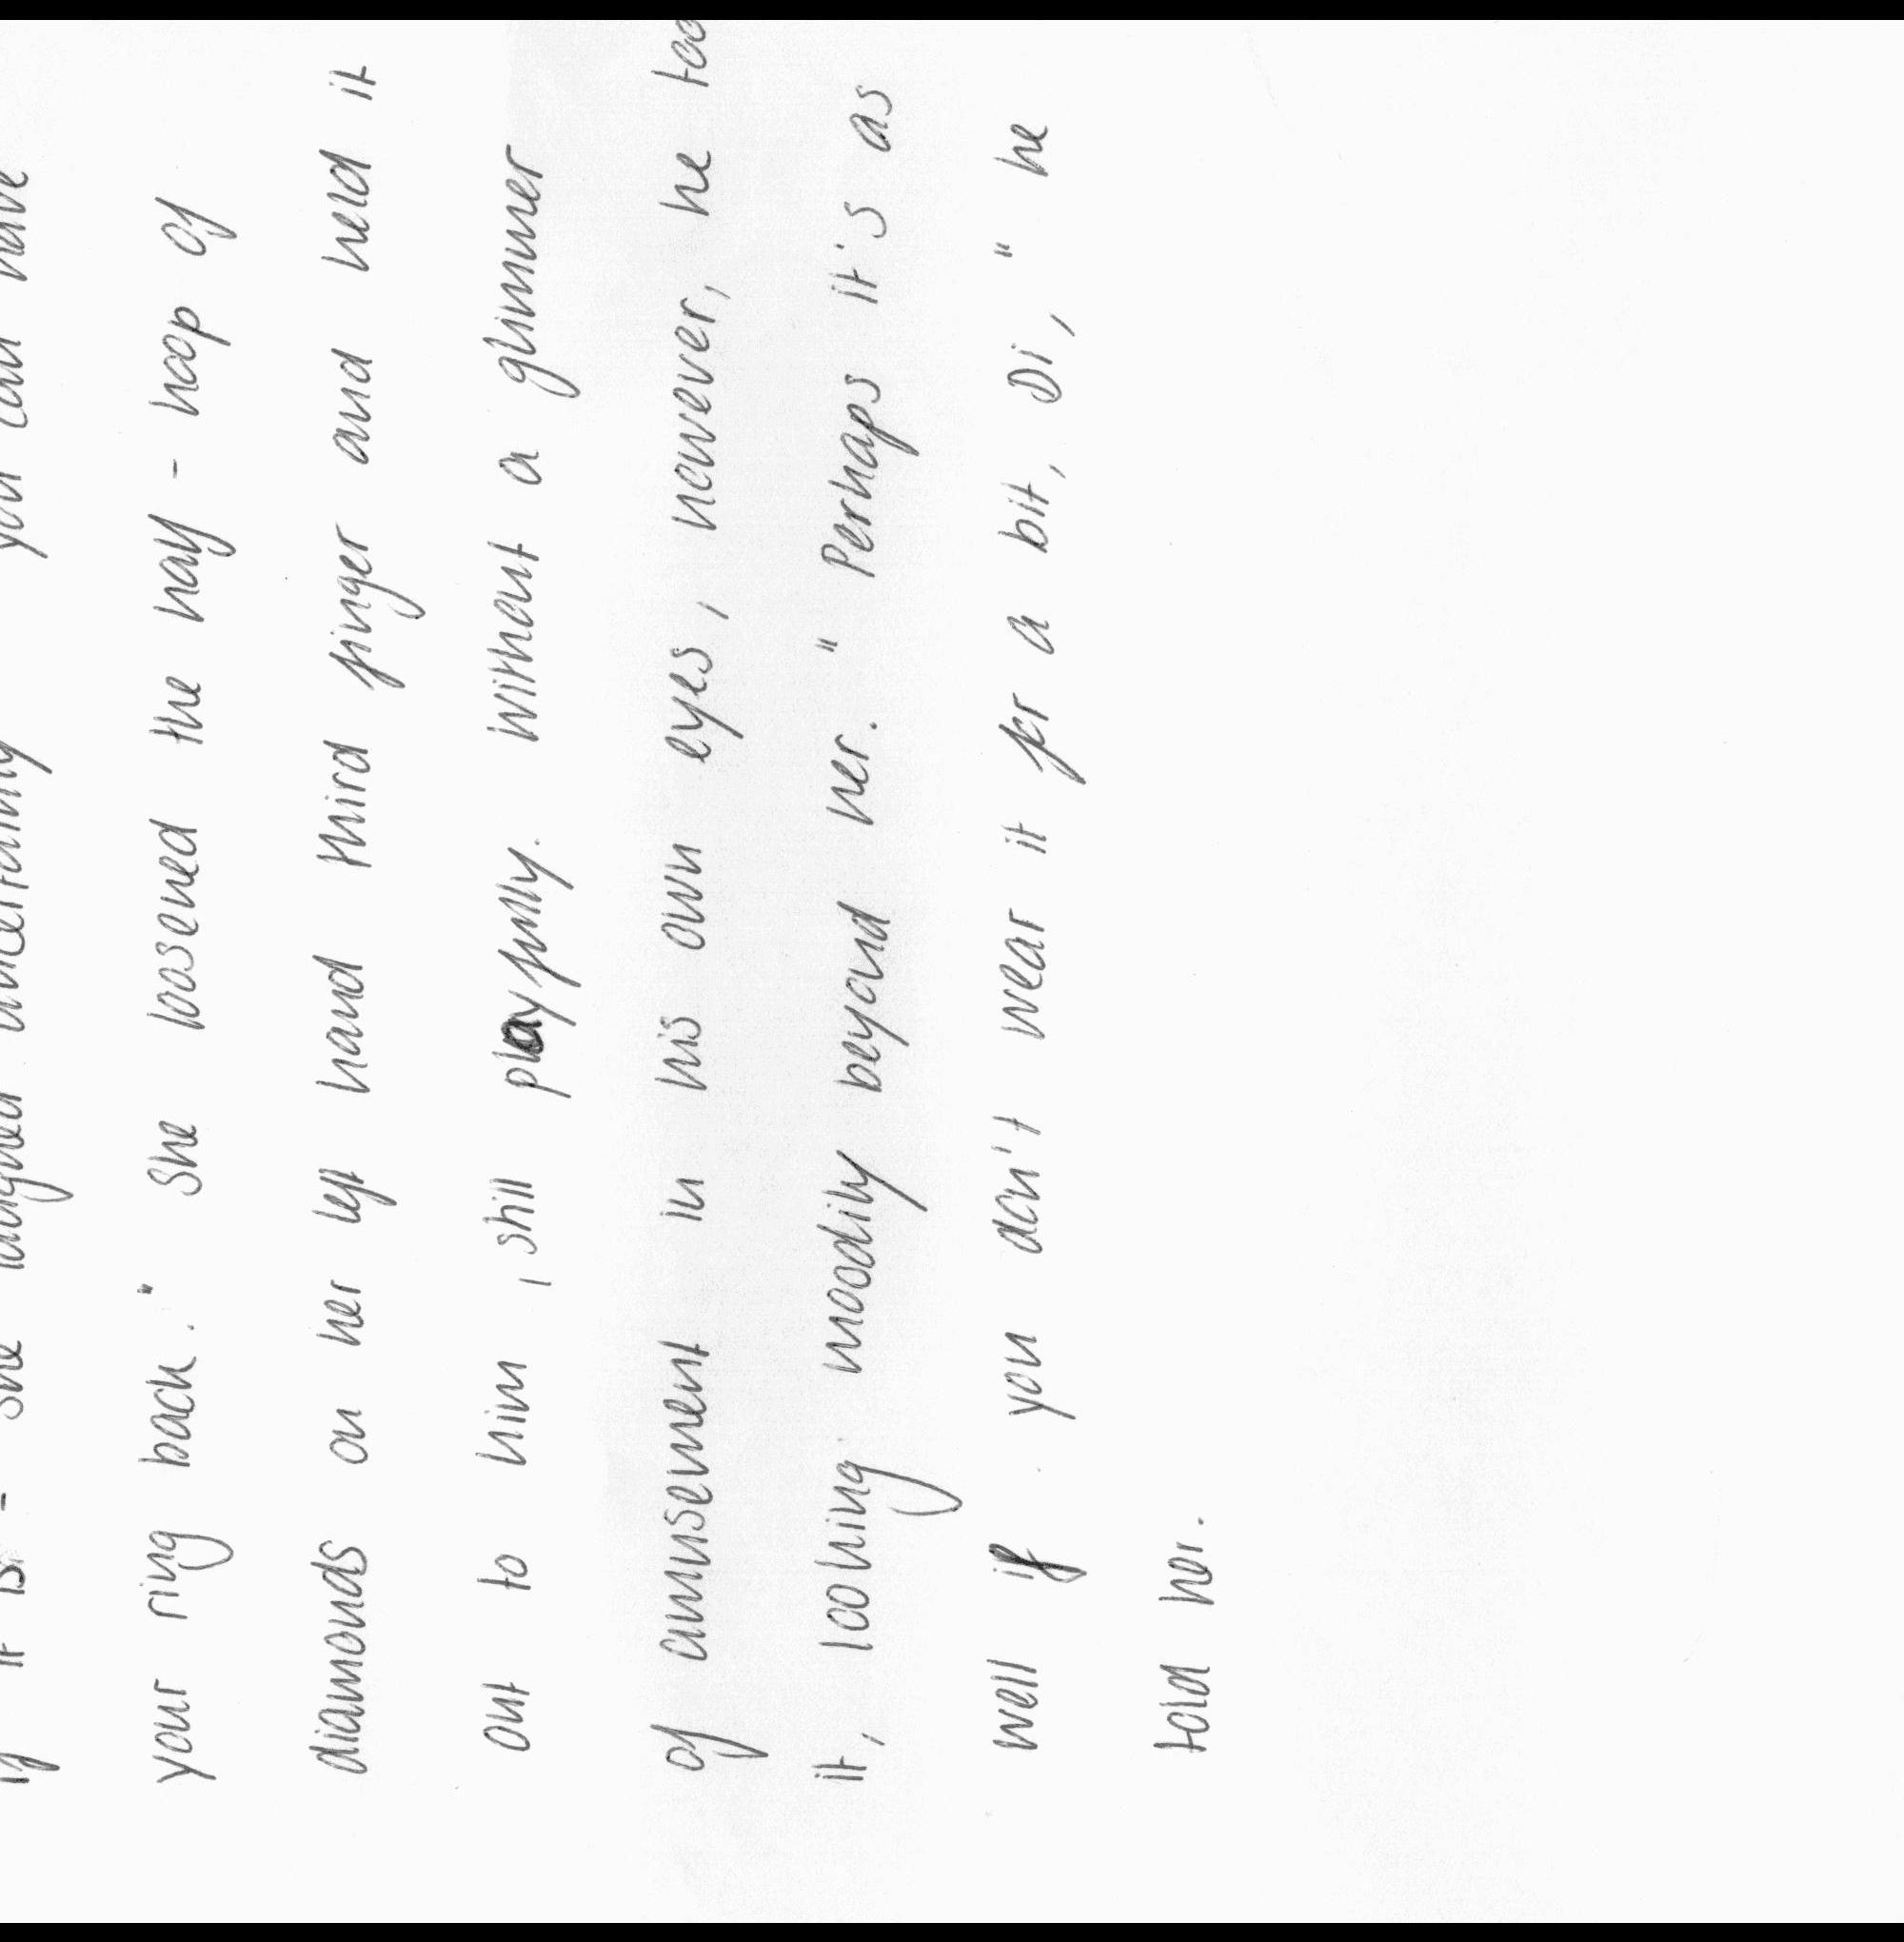 if it is - she laughed uncertainly - you can have
your ring back." She loosened the half - hoop of
diamonds on her left hand third finger and held it
out to him, still playfully. Without a glimmer
of amusement in his own eyes, however, he
it, looking moodily beyond her. "Perhaps it's as
well if you don't wear it for a bit, Di," he
told her.